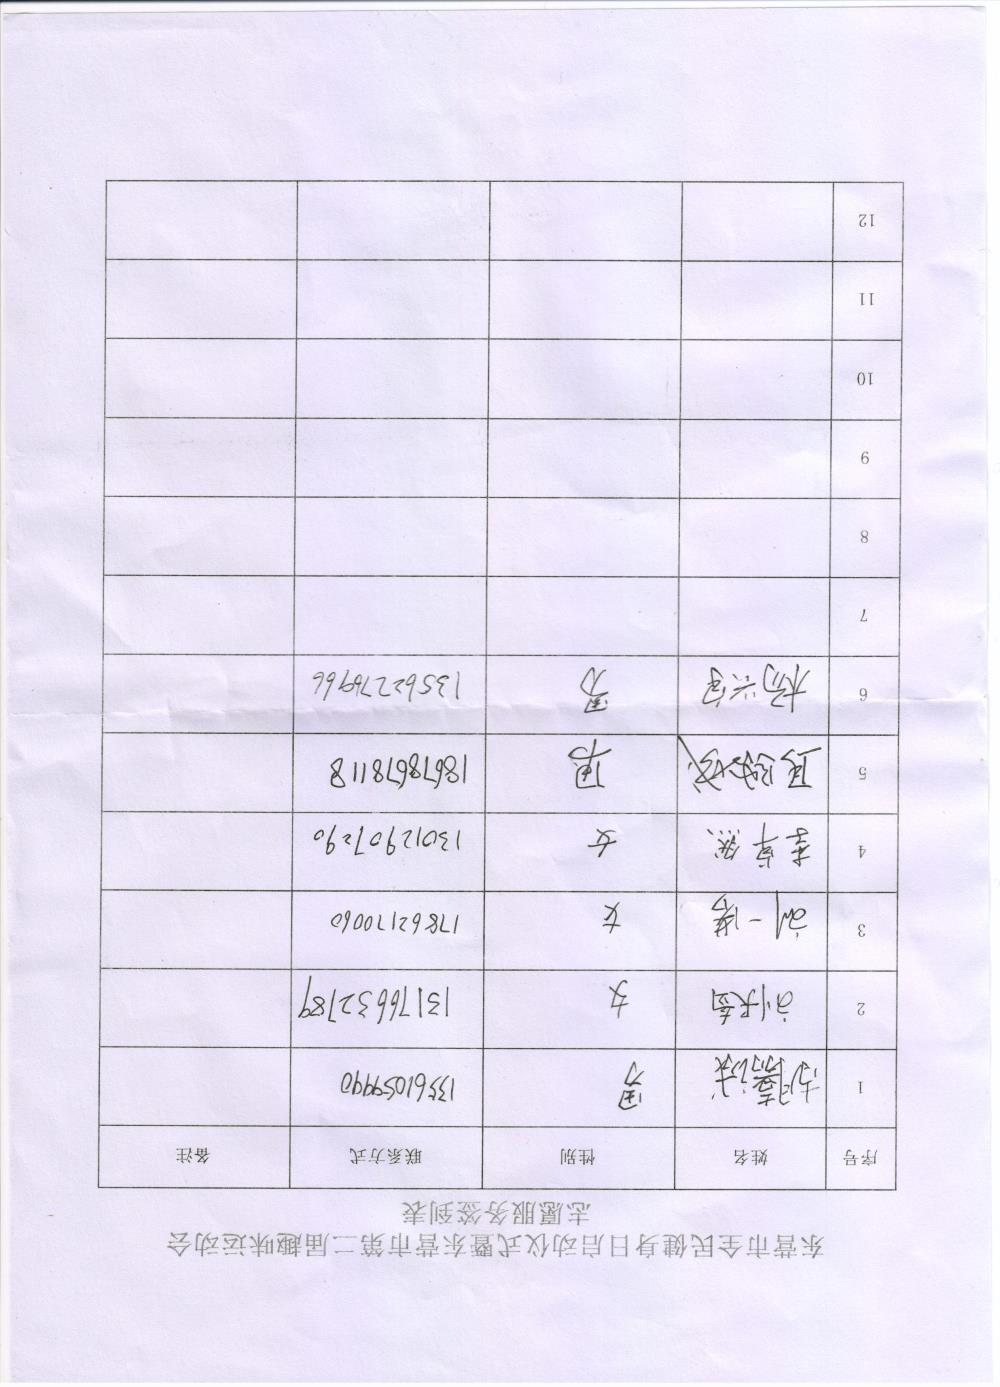 东营市全民健身日启动仪式暨东营市第二届趣味运动会
志愿服务签到表
序号 姓名 性别 联系方式 备注
1 男 13561059990
2 女 13176632789
3 刘一诺 女 17862170060
4 李卓然 女 13012907290
5 男 18678678118
6 杨兴宇 男 13562276966
7
8
9
10
11
12